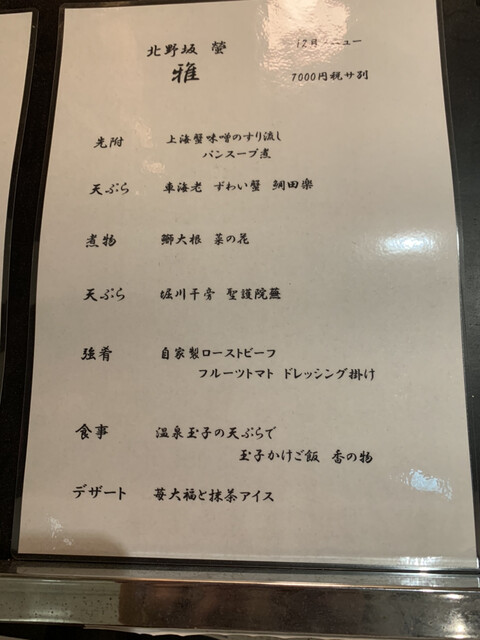 北野坂 螢
12月メニュー
雅
7000円税サ別
先附 上海蟹味噌のすり流し
パンスープ煮
天ぷら 車海老 ずわい蟹 鯛田楽
煮物 鰤大根 菜の花
天ぷら 堀川牛蒡 聖護院蕪
強肴 自家製ローストビーフ
フルーツトマト ドレッシング掛け
食事 温泉玉子の天ぷらで
玉子かけご飯 香の物
デザート 苺大福と抹茶アイス